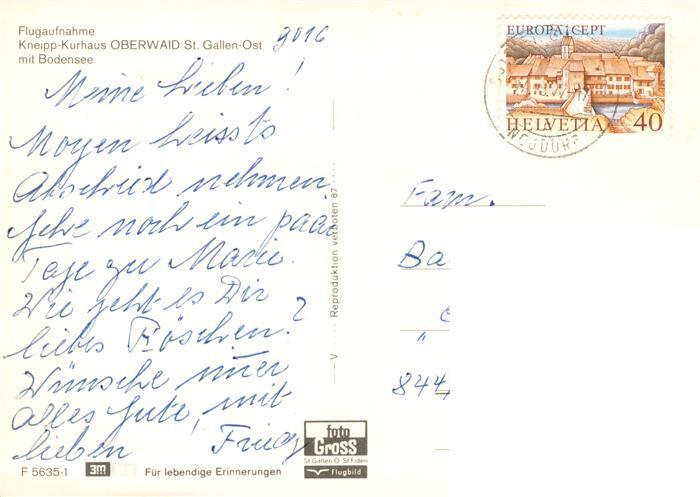 Flugaufnahme
Kneipp-Kurhaus OBERWAID St. Gallen-Ost
mit Bodensee
9016
Meine Lieben!
Morgen heissts
Abschied nehmen
gehe noch ein paar
Tage zu Marie.
Wie geht es Dir
liebes Röschen?
Wünsche imer
alles Gute, mit
lieben
F 5635-1 3m Für lebendige Erinnerungen
V Reproduktion verboten 87
foto
Gross
St.Gallen O St.Fiden
Flugbild
EUROPA CEPT
HELVETIA 40
NEUDORF
Fam.
Ba
"
844